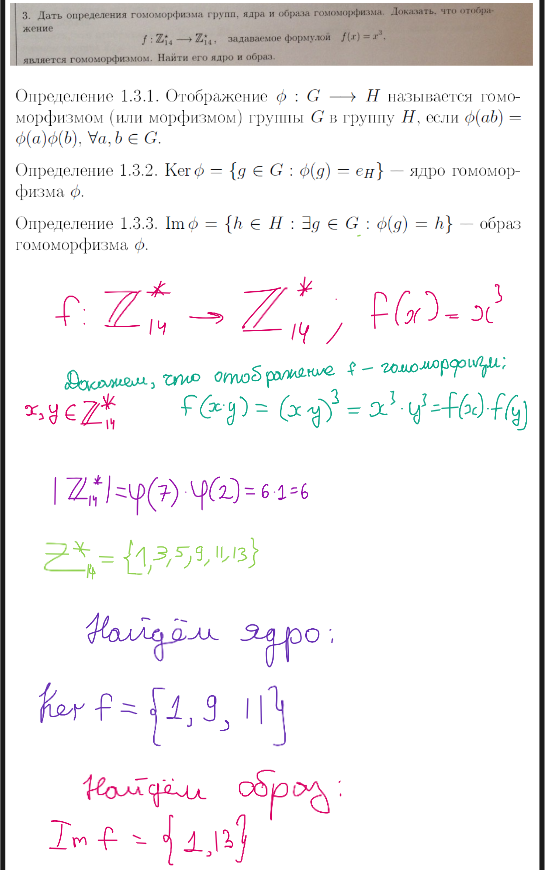 3. Дать определения гомоморфизма групп, ядра и образа гомоморфизма. Доказать, что отобра-
жение
f : ℤ*₁₄ ⟶ ℤ*₁₄, задаваемое формулой f(x) = x³,
является гомоморфизмом. Найти его ядро и образ.
Определение 1.3.1. Отображение ϕ : G ⟶ H называется гомо-
морфизмом (или морфизмом) группы G в группу H, если ϕ(ab) =
ϕ(a)ϕ(b), ∀a, b ∈ G.
Определение 1.3.2. Ker ϕ = {g ∈ G : ϕ(g) = e_H} — ядро гомомор-
физма ϕ.
Определение 1.3.3. Im ϕ = {h ∈ H : ∃g ∈ G : ϕ(g) = h} — образ
гомоморфизма ϕ.
f: ℤ*₁₄ → ℤ*₁₄ ; f(x) = x³
Докажем, что отображение f – гомоморфизм:
x, y ∈ ℤ*₁₄ f(x·y) = (x·y)³ = x³·y³ = f(x)·f(y)
|ℤ*₁₄| = φ(7)·φ(2) = 6·1 = 6
ℤ*₁₄ = {1,3,5,9,11,13}
Найдём ядро:
Ker f = {1, 9, 11}
Найдём образ:
Im f = {1,13}